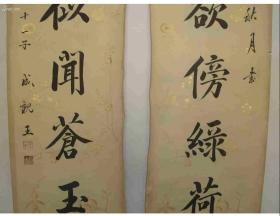 秋月書
欲傍綠荷
似聞蒼玉
十一子 成親王